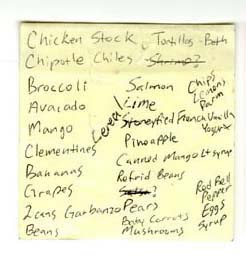 Chicken Stock Tortillas - Both
Chipotle Chiles Shrimp?
Broccoli
Avacado
Mango
Clementines
Bananas
Grapes
2 cans Garbanzo
Beans
Salmon
Lime
Stonyfied French Vanilla
Yogurt
Pineapple
Canned Mango Lt syrup
Refrid Beans
Salsa?
Pears
Baby Carrots
Mushrooms
Chips
Lemons
Parm
Red Bell
Pepper
Eggs
Syrup